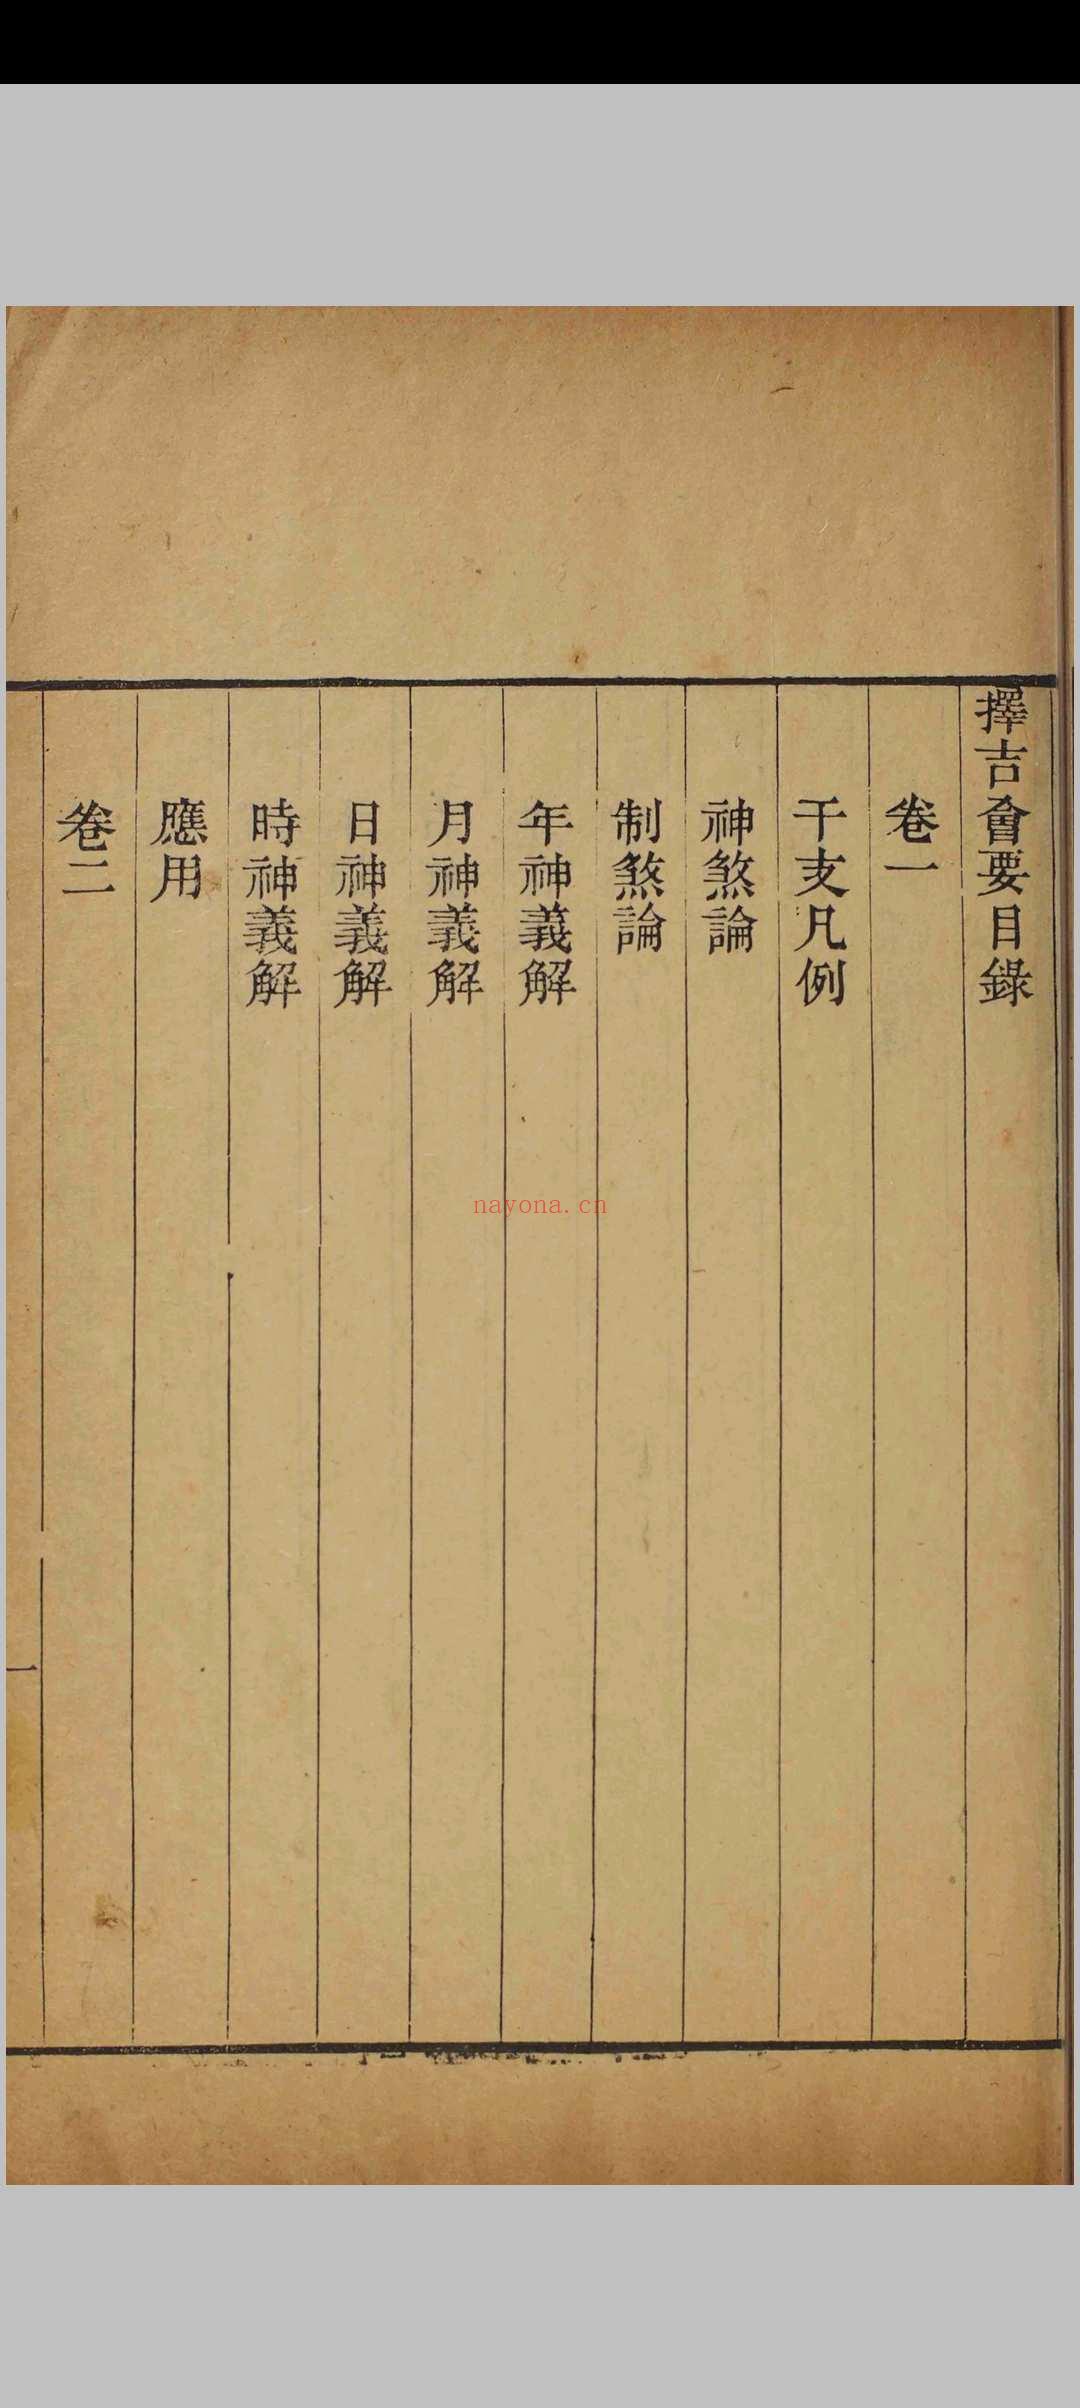 擇吉會要目錄
卷一
干支凡例
神煞論
制煞論
年神義解
月神義解
日神義解
時神義解
應用
卷二
一
nayona.cn